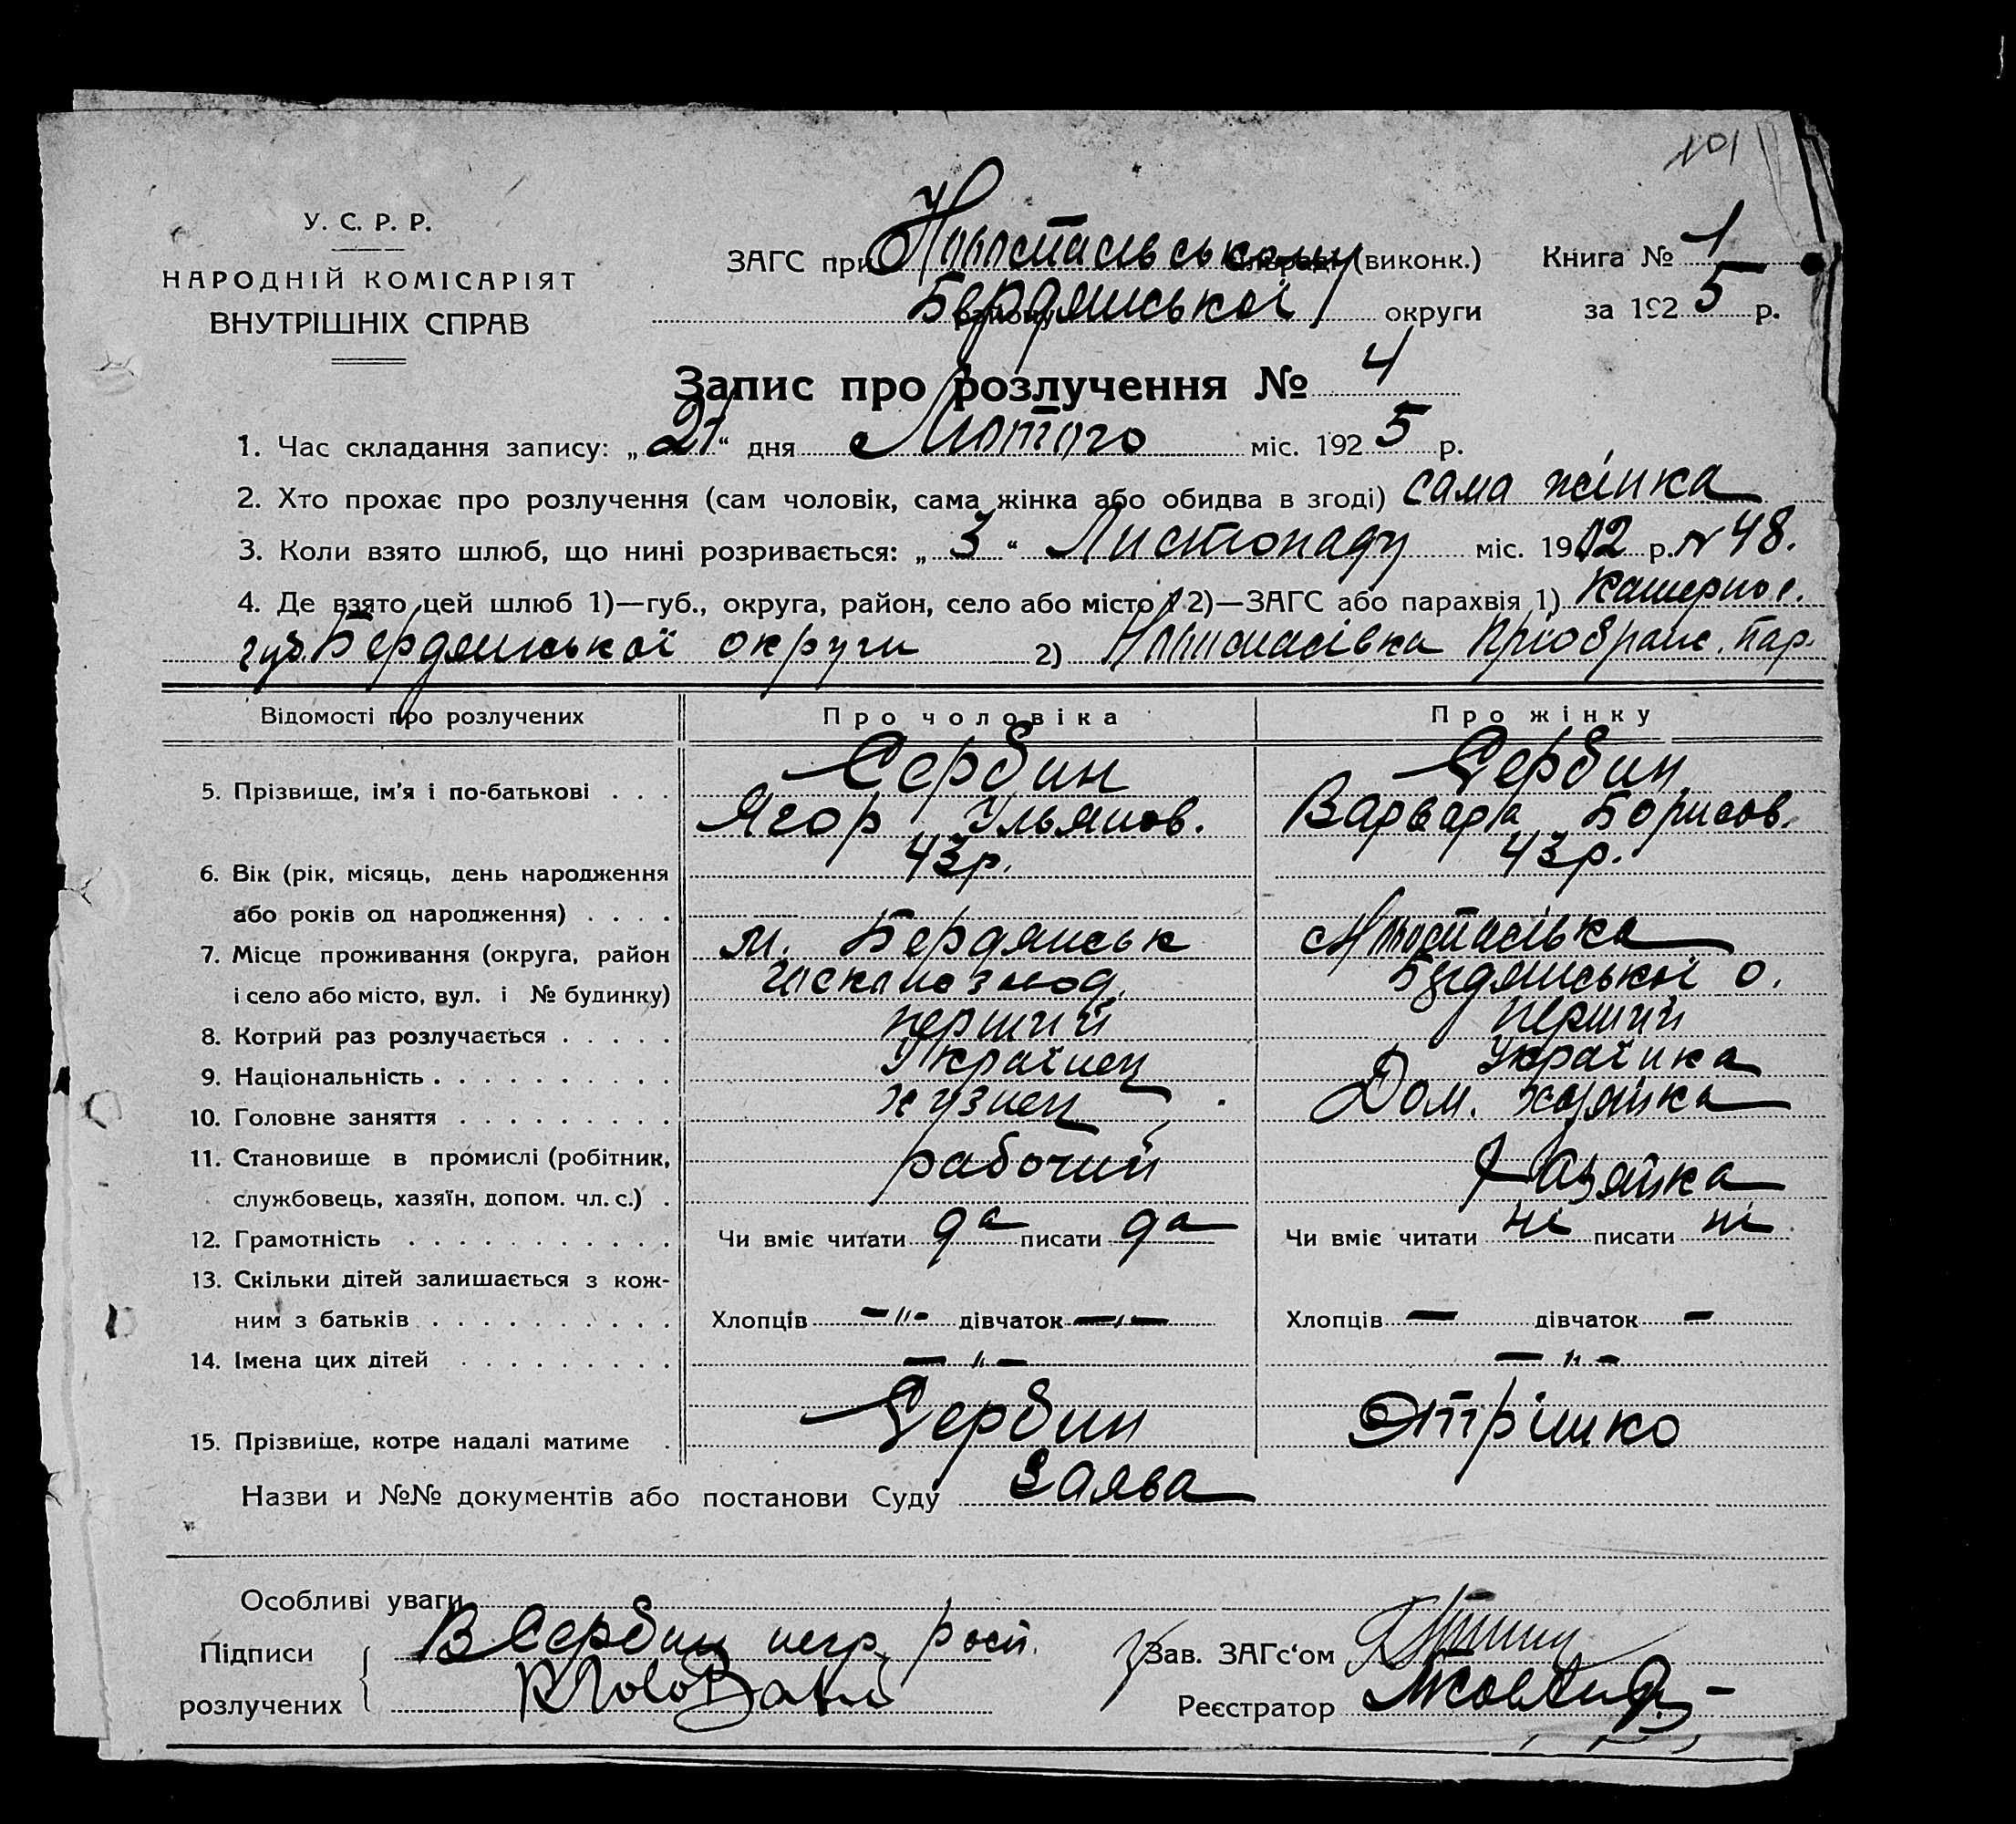 101
У. С. Р. Р.
НАРОДНІЙ КОМІСАРІЯТ
ВНУТРІШНІХ СПРАВ
ЗАГС при (виконк.) Книга № 1
Бердянської округи за 1925 р.
Запис про розлучення № 4
1. Час складання запису: „21“ дня Лютого міс. 1925 р.
2. Хто прохає про розлучення (сам чоловік, сама жінка або обидва в згоді) сама жінка
3. Коли взято шлюб, що нині розривається: „3“ Листопаду міс. 1912 р. № 48.
4. Де взято цей шлюб 1)—губ., округа, район, село або місто і 2)—ЗАГС або парахвія 1)
губ. Бердянської округи 2)
Відомості про розлучених Про чоловіка Про жінку
5. Прізвище, ім'я і по-батькові . . . Сербин Сербин
Ягор Ульянов. Варвара Борисов.
6. Вік (рік, місяць, день народження 43р. 43р.
або років од народження) . . . .
7. Місце проживання (округа, район м. Бердянськ
і село або місто, вул. і № будинку) Бердянської о.
8. Котрий раз розлучається . . . . . перший перший
9. Національність . . . . . . . . . . Українец Українка
10. Головне заняття . . . . . . . . . кузнец Дом. хазяйка
11. Становище в промислі (робітник, рабочий Хазяйка
службовець, хазяїн, допом. чл. с.) .
12. Грамотність . . . . . . . . . . . Чи вміє читати да писати да Чи вміє читати ні писати ні
13. Скільки дітей залишається з кож-
ним з батьків . . . . . . . . . . Хлопців — " — дівчаток — " — Хлопців — дівчаток —
14. Імена цих дітей . . . . . . . . . — " — — " —
15. Прізвище, котре надалі матиме . Сербин Отрішко
Назви и №№ документів або постанови Суду Заява
Особливі уваги
Підписи В Сербин негр. росп. Зав. ЗАГс‘ом
розлучених Реєстратор